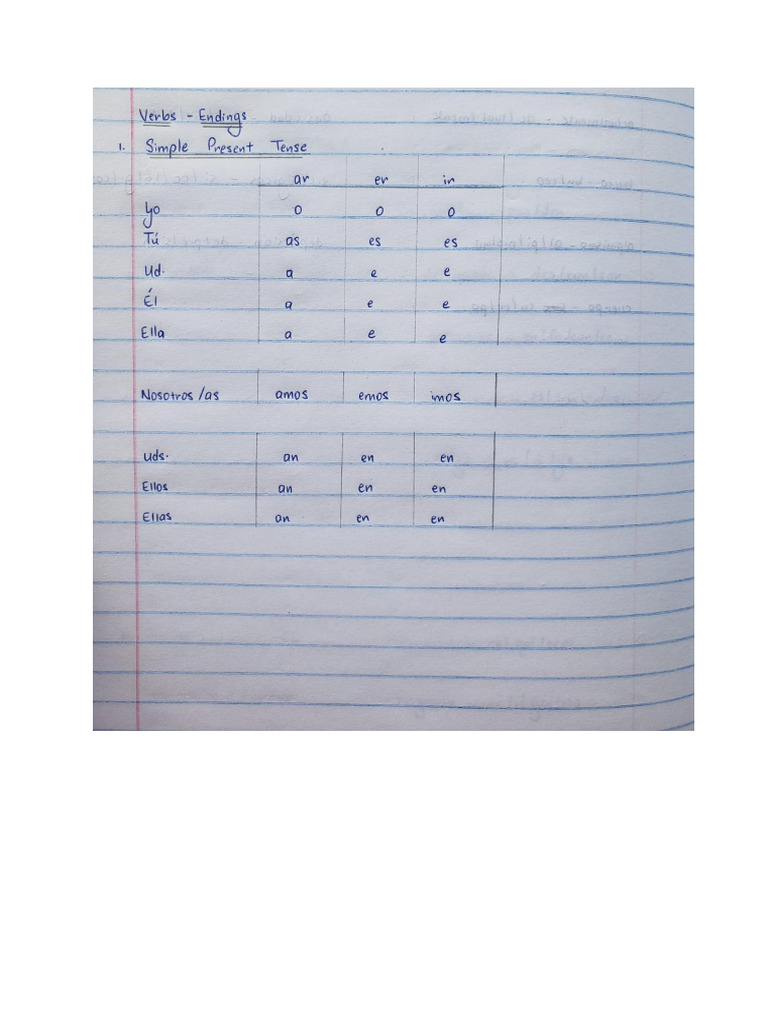 Verbs - Endings
1. Simple Present Tense
ar er ir
Yo o o o
Tú as es es
Ud. a e e
Él a e e
Ella a e e
Nosotros/as amos emos imos
Uds. an en en
Ellos an en en
Ellas an en en